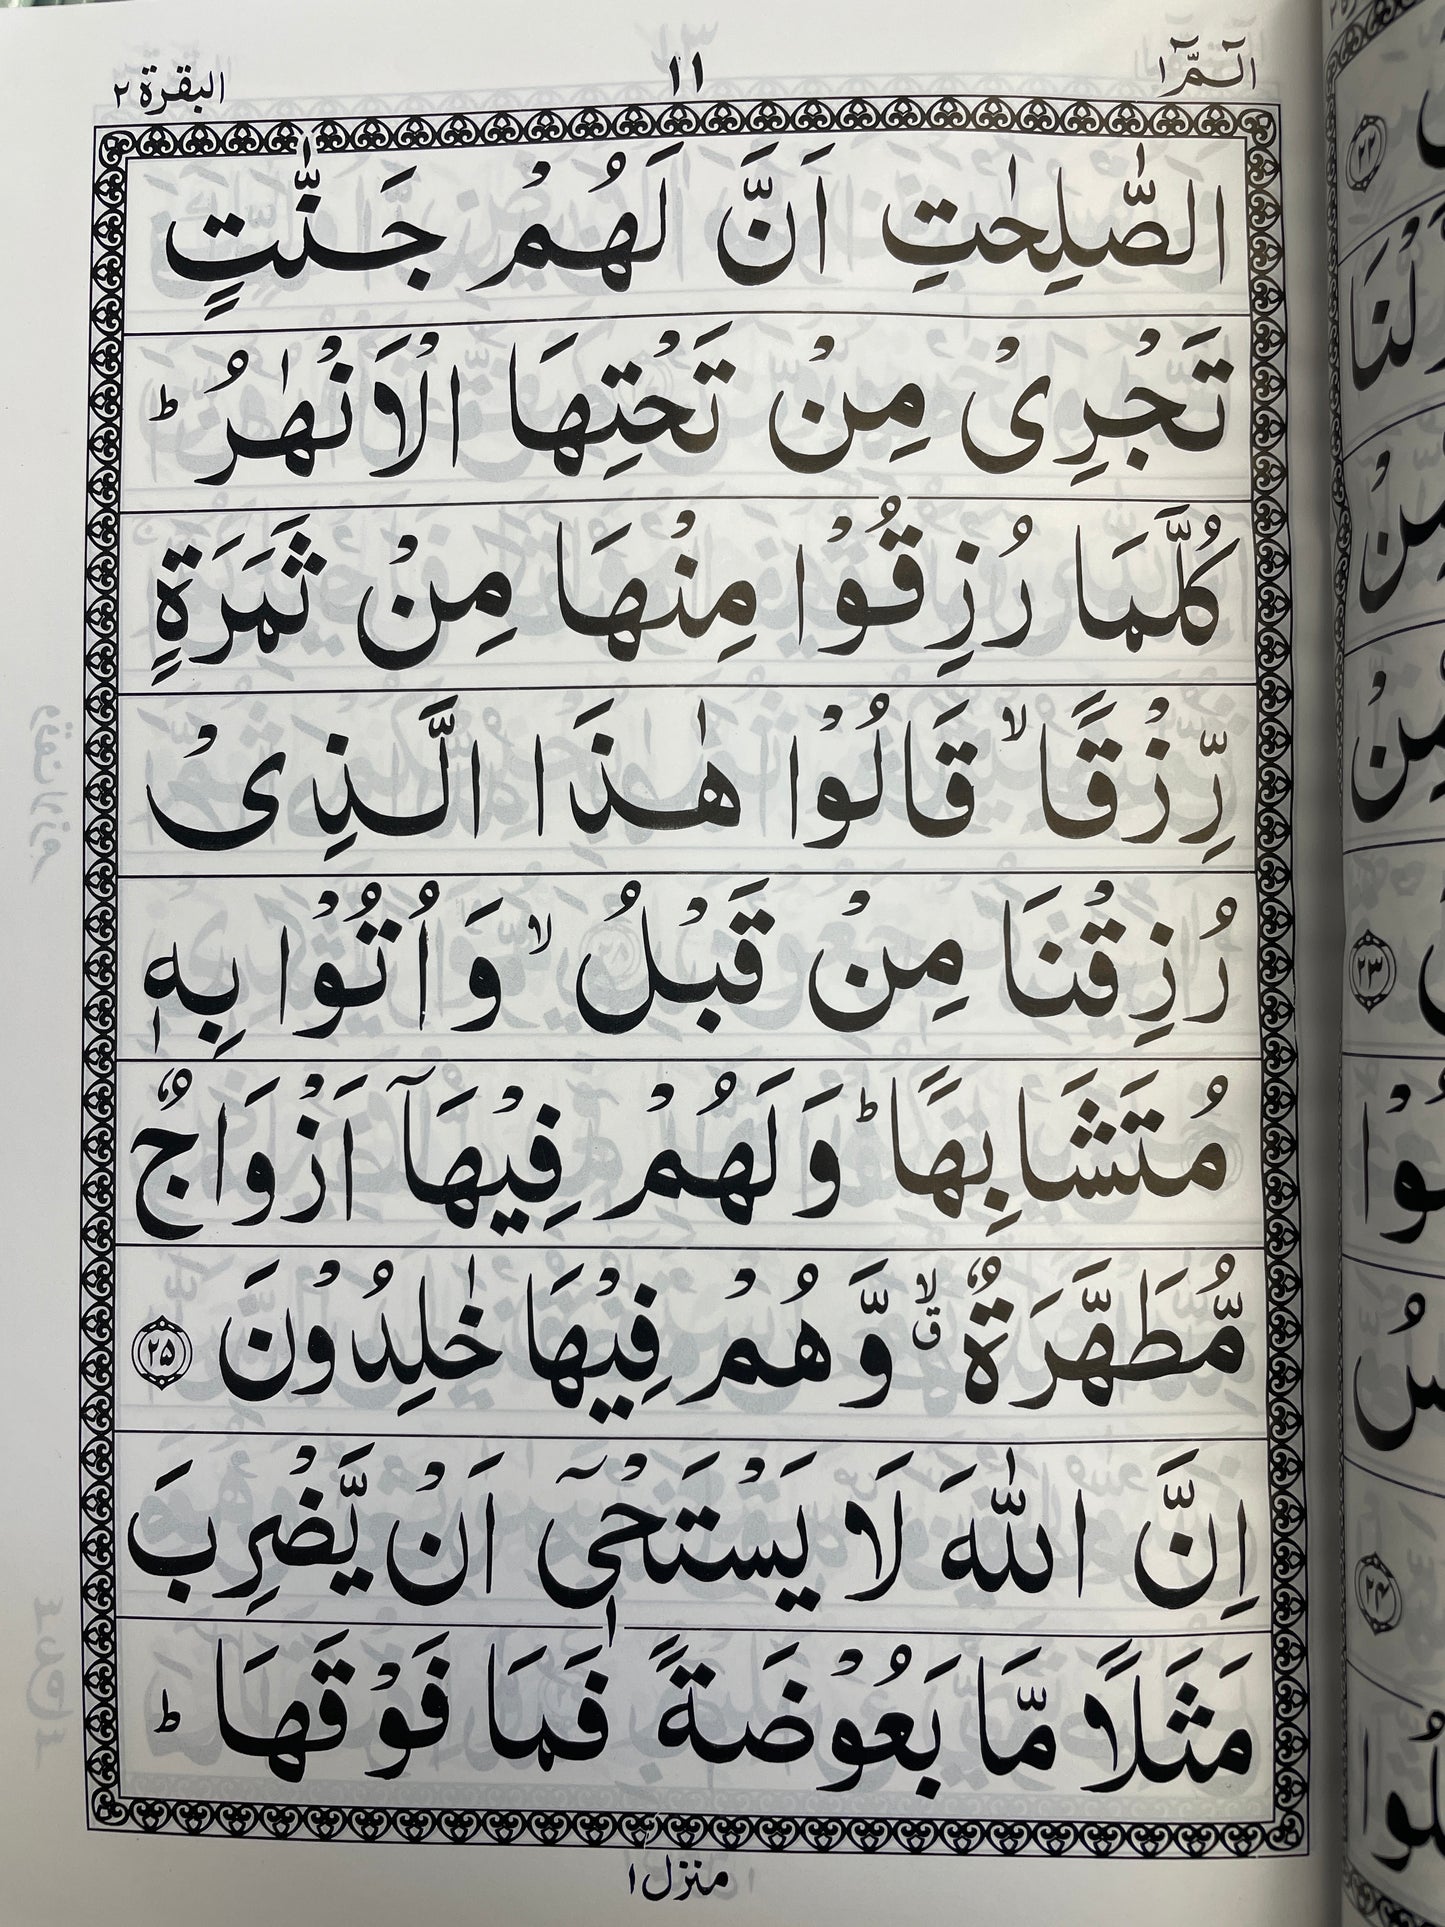 الٓـمّٓ ١ ١١ البقرة ٢
الصّٰلِحٰتِ اَنَّ لَهُمْ جَنّٰتٍ
تَجْرِیْ مِنْ تَحْتِهَا الْاَنْهٰرُ ؕ
كُلَّمَا رُزِقُوْا مِنْهَا مِنْ ثَمَرَةٍ
رِّزْقًا ۙ قَالُوْا هٰذَا الَّذِیْ
رُزِقْنَا مِنْ قَبْلُ ۙ وَاُتُوْا بِهٖ
مُتَشَابِهًا ؕ وَلَهُمْ فِیْهَاۤ اَزْوَاجٌ
مُّطَهَّرَةٌ ۙۗ وَّهُمْ فِیْهَا خٰلِدُوْنَ ﴿۲۵﴾
اِنَّ اللّٰهَ لَا یَسْتَحْیٖۤ اَنْ یَّضْرِبَ
مَثَلًا مَّا بَعُوْضَةً فَمَا فَوْقَهَا ؕ
منزل ١